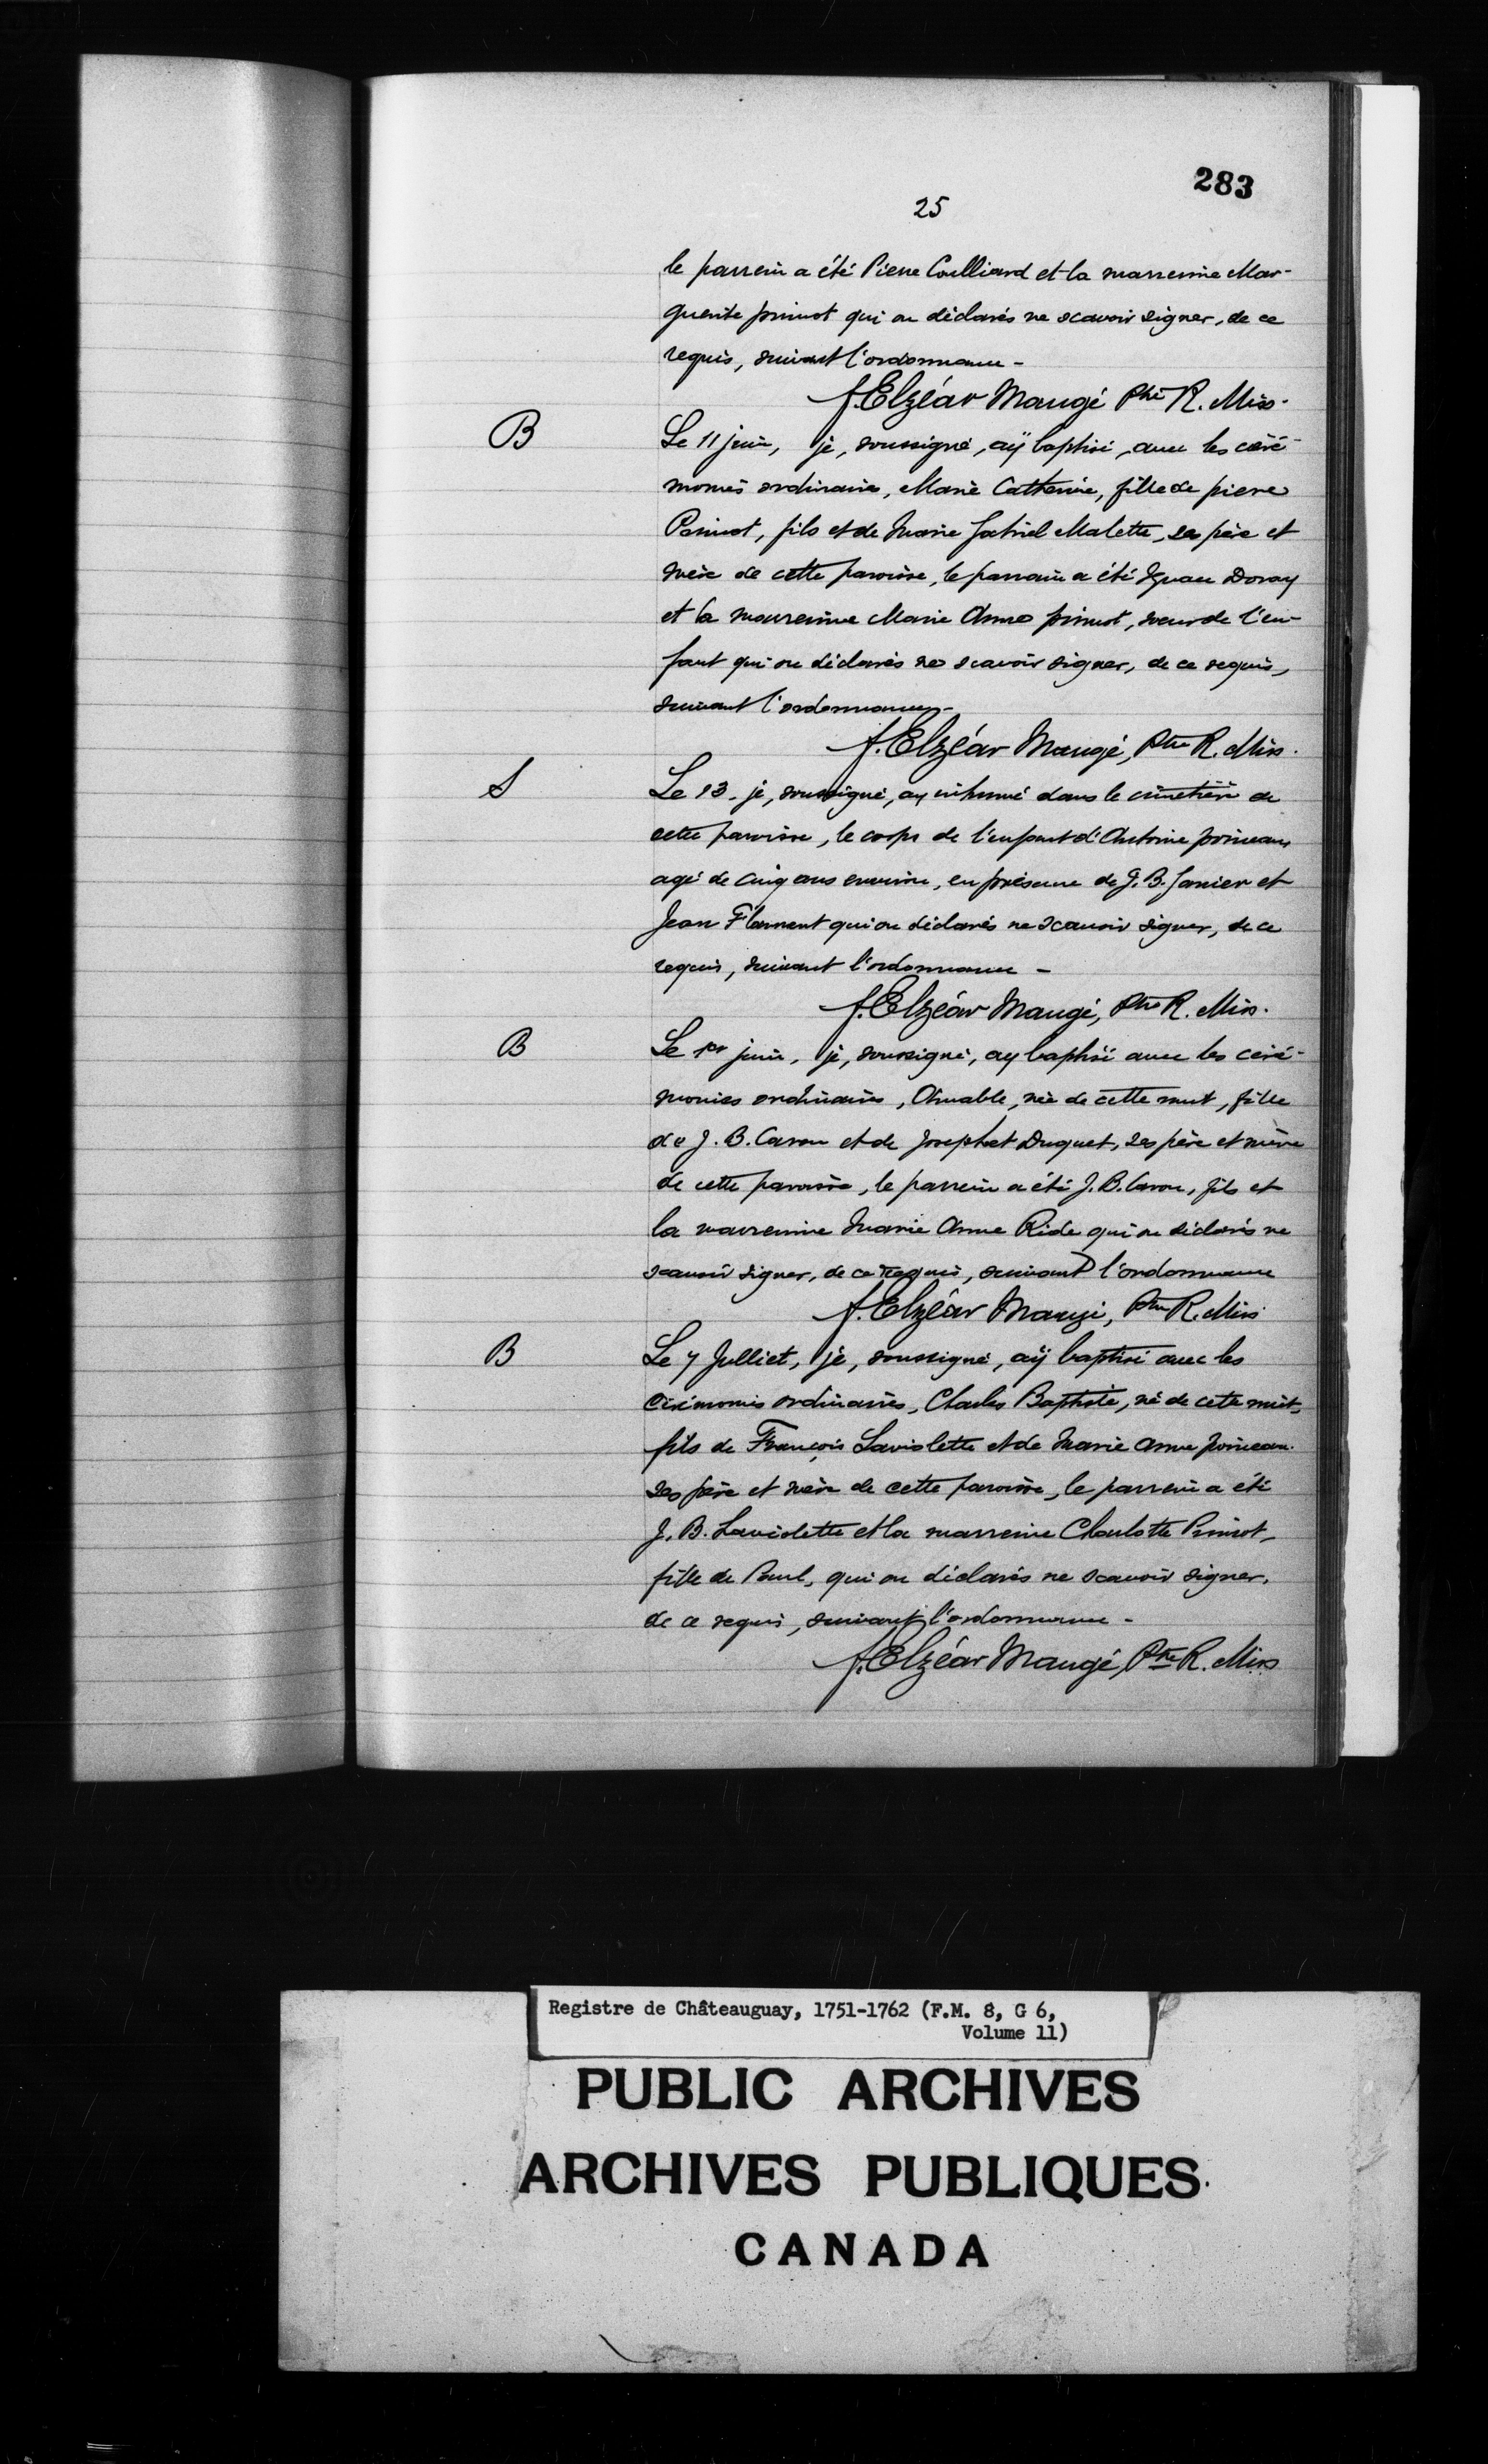 283
25
le parrein a été Pierre Coulliard et la marrenine Mar-
guerite primot qui on déclarés ne scavoir signer, de ce
requis, suivant l'ordonnance -
f. Elzéar Maugé Ptre R. Miss.
B
Le 11 juin, je, soussigné, aÿ baptisé, avec les céré-
monies ordinaires, Marie Catherine, fille de pierre
Primot, fils et de Marie Gabriel Malette, ses père et
mère de cette paroisse, le parrain a été Ignace Doray
et la marreinne Marie Anne primot, sœur de l'en-
fant qui on déclarés ne scavoir signer, de ce requis,
suivant l'ordonnance -
f. Elzéar Maugé, Ptre R. Miss.
S
Le 13. je, soussigné, ay inhumé dans le cimetière de
cette paroisse, le corps de l'enfant d'Antoine primeau
agé de cinq ans environ, en présence de J. B. et
Jean Flament qui on déclarés ne scavoir signer, de ce
requis, suivant l'ordonnance -
f. Elzéar Maugé, Ptre R. Miss.
B
Le 1er juin, je, soussigné, ay baptisé avec les céré-
monies ordinaires, Amable, née de cette nuit, fille
de J. B. Caron et de Josephet Duquet, ses père et mère
de cette paroisse, le parrein a été J. B. Caron, fils et
la marrenine Marie Anne Ride qui on déclarés ne
scavoir signer, de ce requis, suivant l'ordonnance
f. Elzéar Maugé, Ptre R. Miss
B
Le 7 Julliet, je, soussigné, aÿ baptisé avec les
cérémonies ordinaires, Charles Baptiste, né de cette nuit,
fils de François Laviolette et de Marie Anne primeau.
ses père et mère de cette paroisse, le parrein a été
J. B. Laviolette et la marreine Charlotte Primot,
fille de Paul, qui on déclarés ne scavoir signer,
de ce requis, suivant l'ordonnance -
f. Elzéar Maugé, Ptre R. Miss
Registre de Châteauguay, 1751-1762 (F.M. 8, G 6,
Volume 11)
PUBLIC ARCHIVES
ARCHIVES PUBLIQUES
CANADA